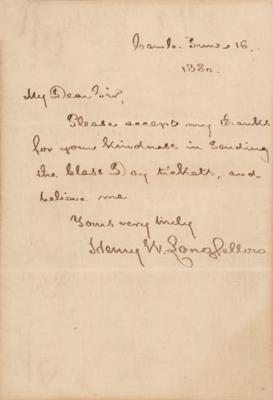 Camb. June 16.
1880.
My Dear Sir,
Please accept my thanks
for your kindness in sending
the Class Day tickets, and
believe me
Yours very truly
Henry W. Longfellow